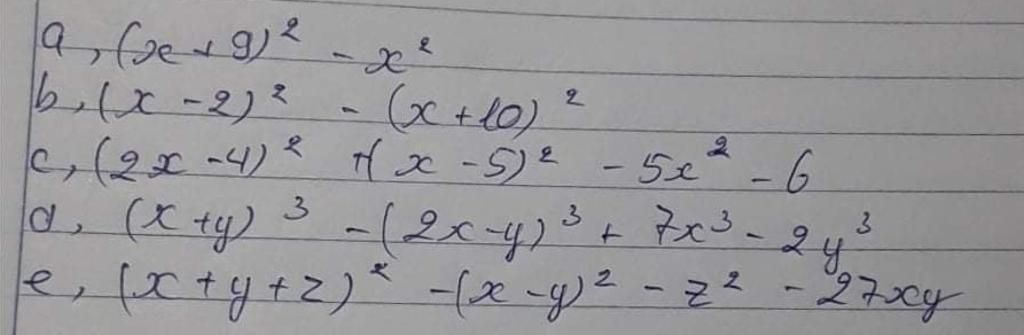 a, (x + 9)² - x²
b, (x - 2)² - (x + 10)²
c, (2x - 4)² + (x - 5)² - 5x² - 6
d, (x + y)³ - (2x - y)³ + 7x³ - 2y³
e, (x + y + z)² - (x - y)² - z² - 27xy